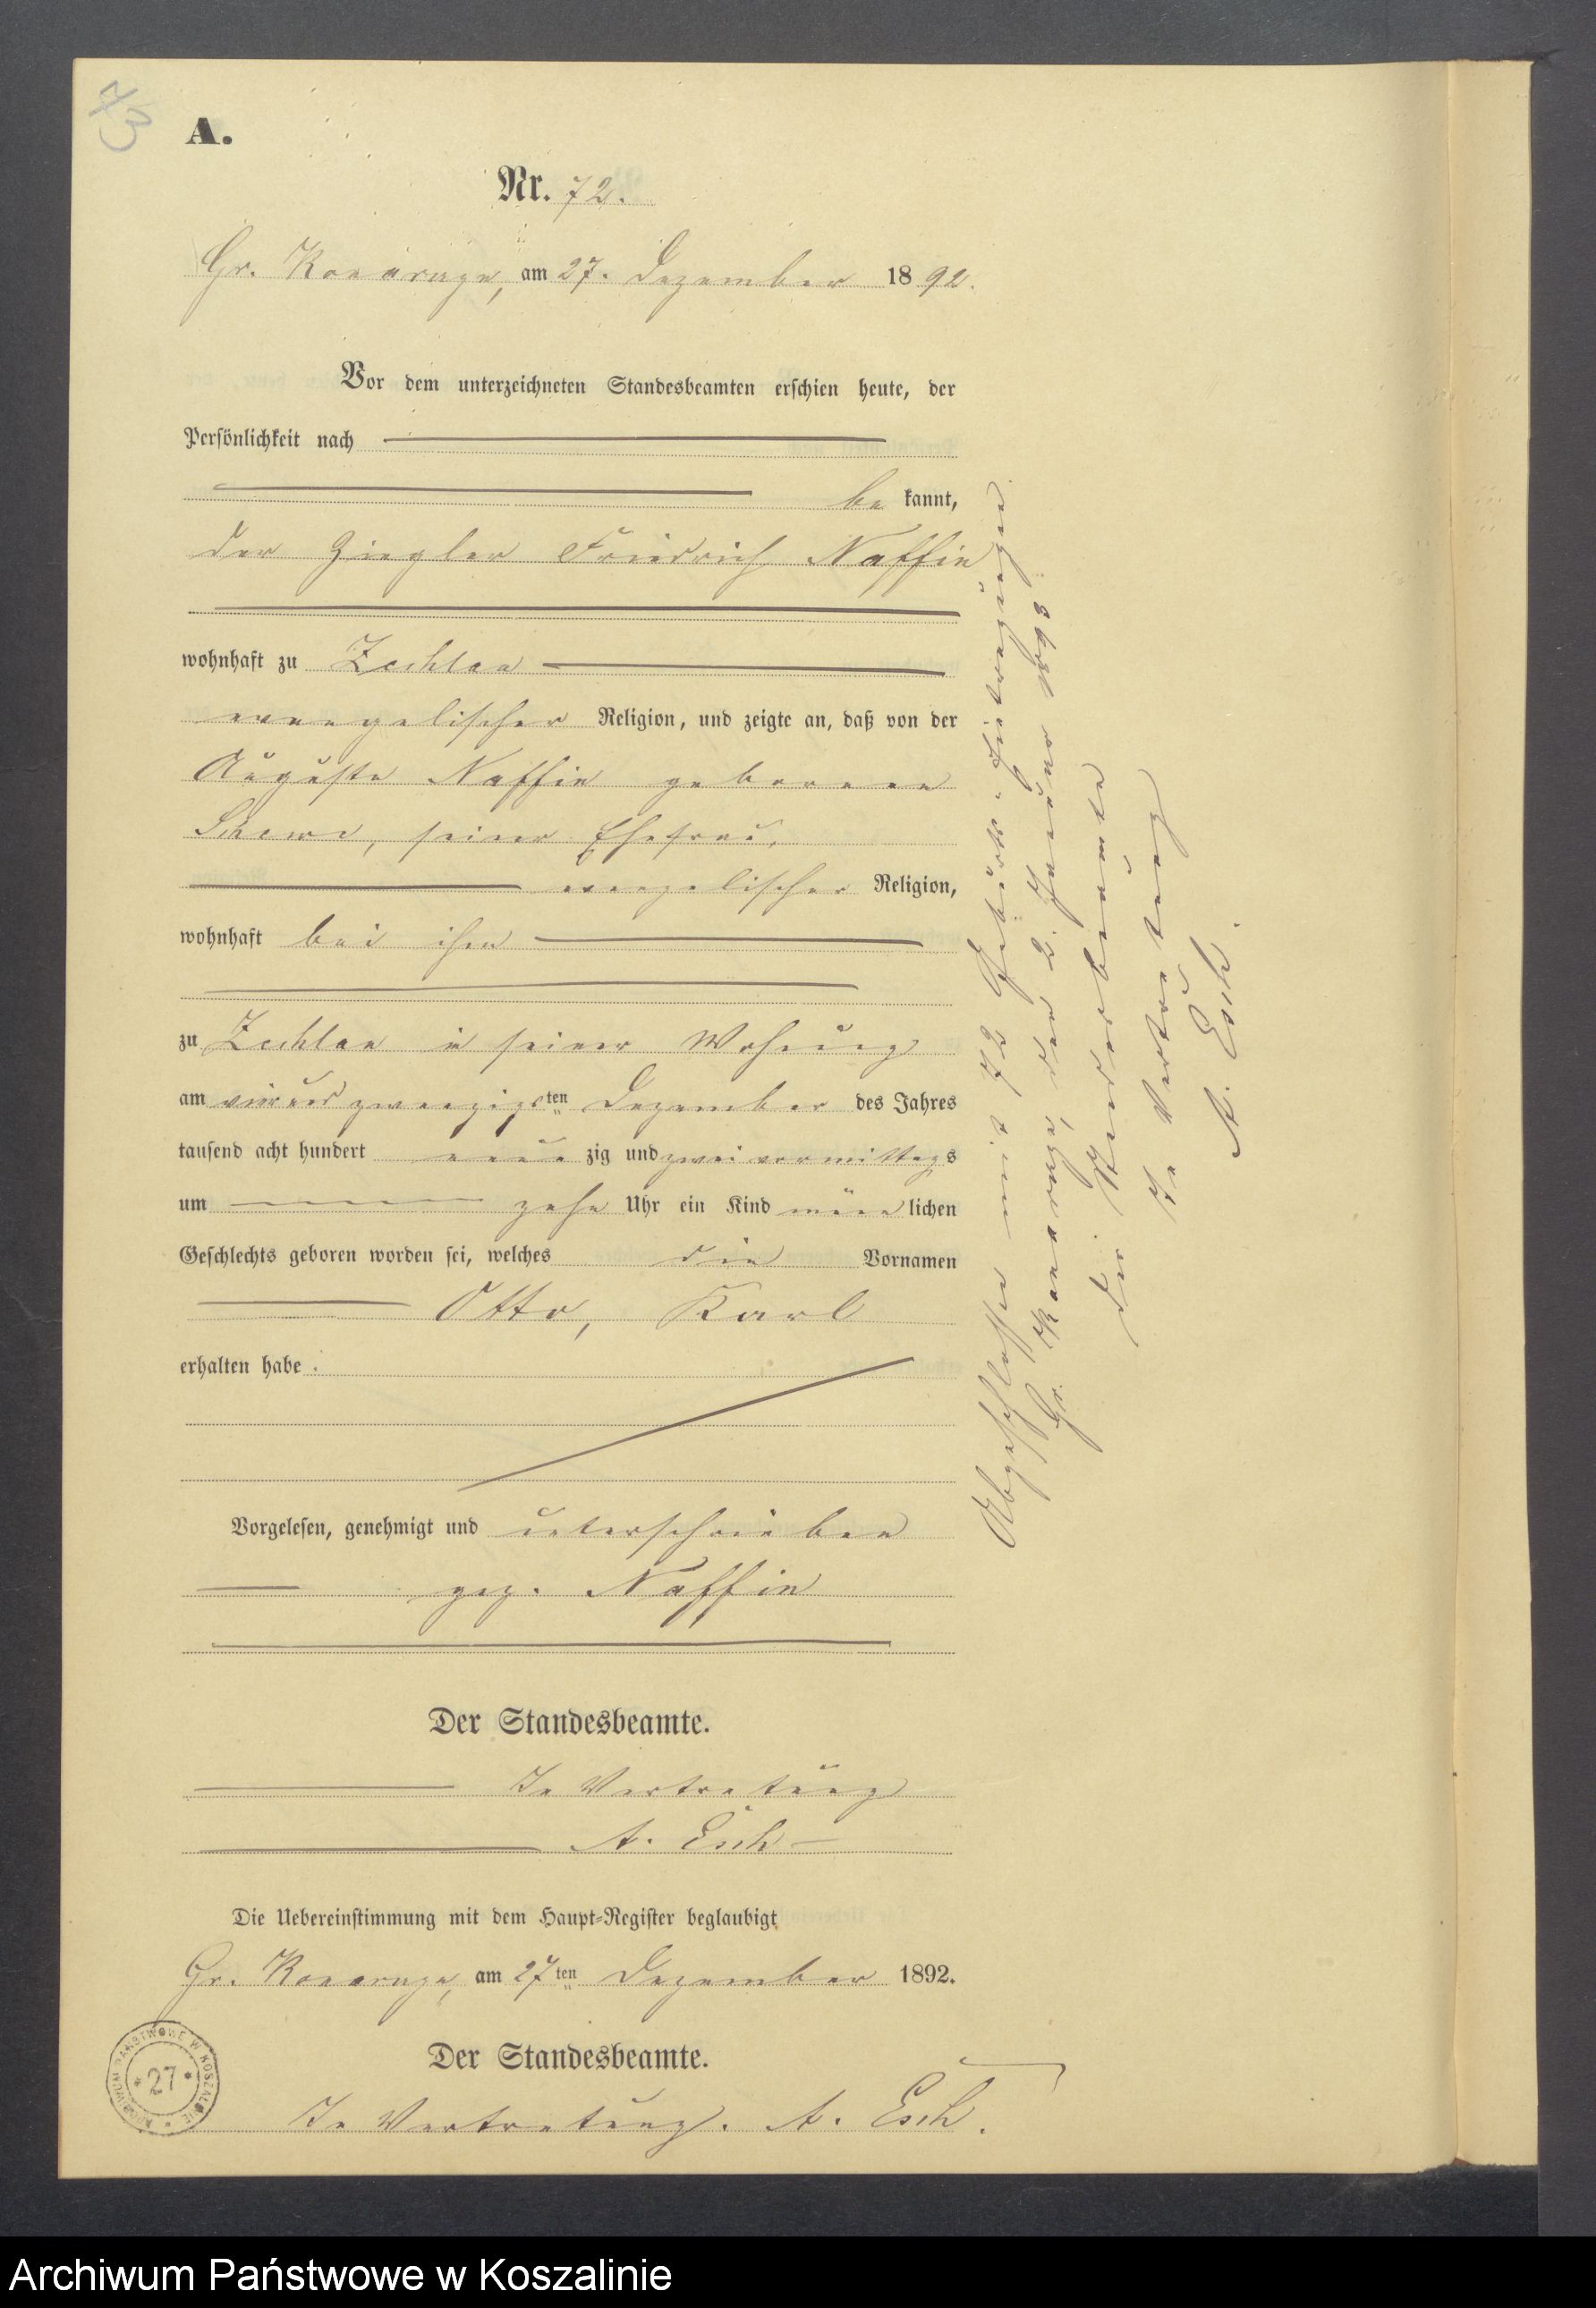 73
A.
Nr. 72.
Gr. Konarczyn, am 27. Dezember 1892.
Vor dem unterzeichneten Standesbeamten erschien heute, der
Persönlichkeit nach
be kannt,
der Ziegler Friedrich Naffin
wohnhaft zu Zechlau
evangelischer Religion, und zeigte an, daß von der
Auguste Naffin geborenen
seiner Ehefrau,
evangelischer Religion,
wohnhaft bei ihm
zu Zechlau in seiner Wohnung
am vier und zwanzigsten Dezember des Jahres
tausend acht hundert neun zig und zwei vormittags
um zehn Uhr ein Kind männ lichen
Geschlechts geboren worden sei, welches die Vornamen
Otto, Karl
erhalten habe.
Vorgelesen, genehmigt und unterschrieben
gez. Naffin
Der Standesbeamte.
In Vertretung
A. Esch
Die Uebereinstimmung mit dem Haupt-Register beglaubigt
Gr. Konarczyn, am 27ten Dezember 1892.
Der Standesbeamte.
In Vertretung. A. Esch.
Abgeschlossen mit 72 Geburts-Eintragungen
Gr. Konarczyn, den 2. Januar 1893
Der Standesbeamte
In Vertretung
A. Esch.
ARCHIWUM PAŃSTWOWE W KOSZALINIE
* 27 *
Archiwum Państwowe w Koszalinie